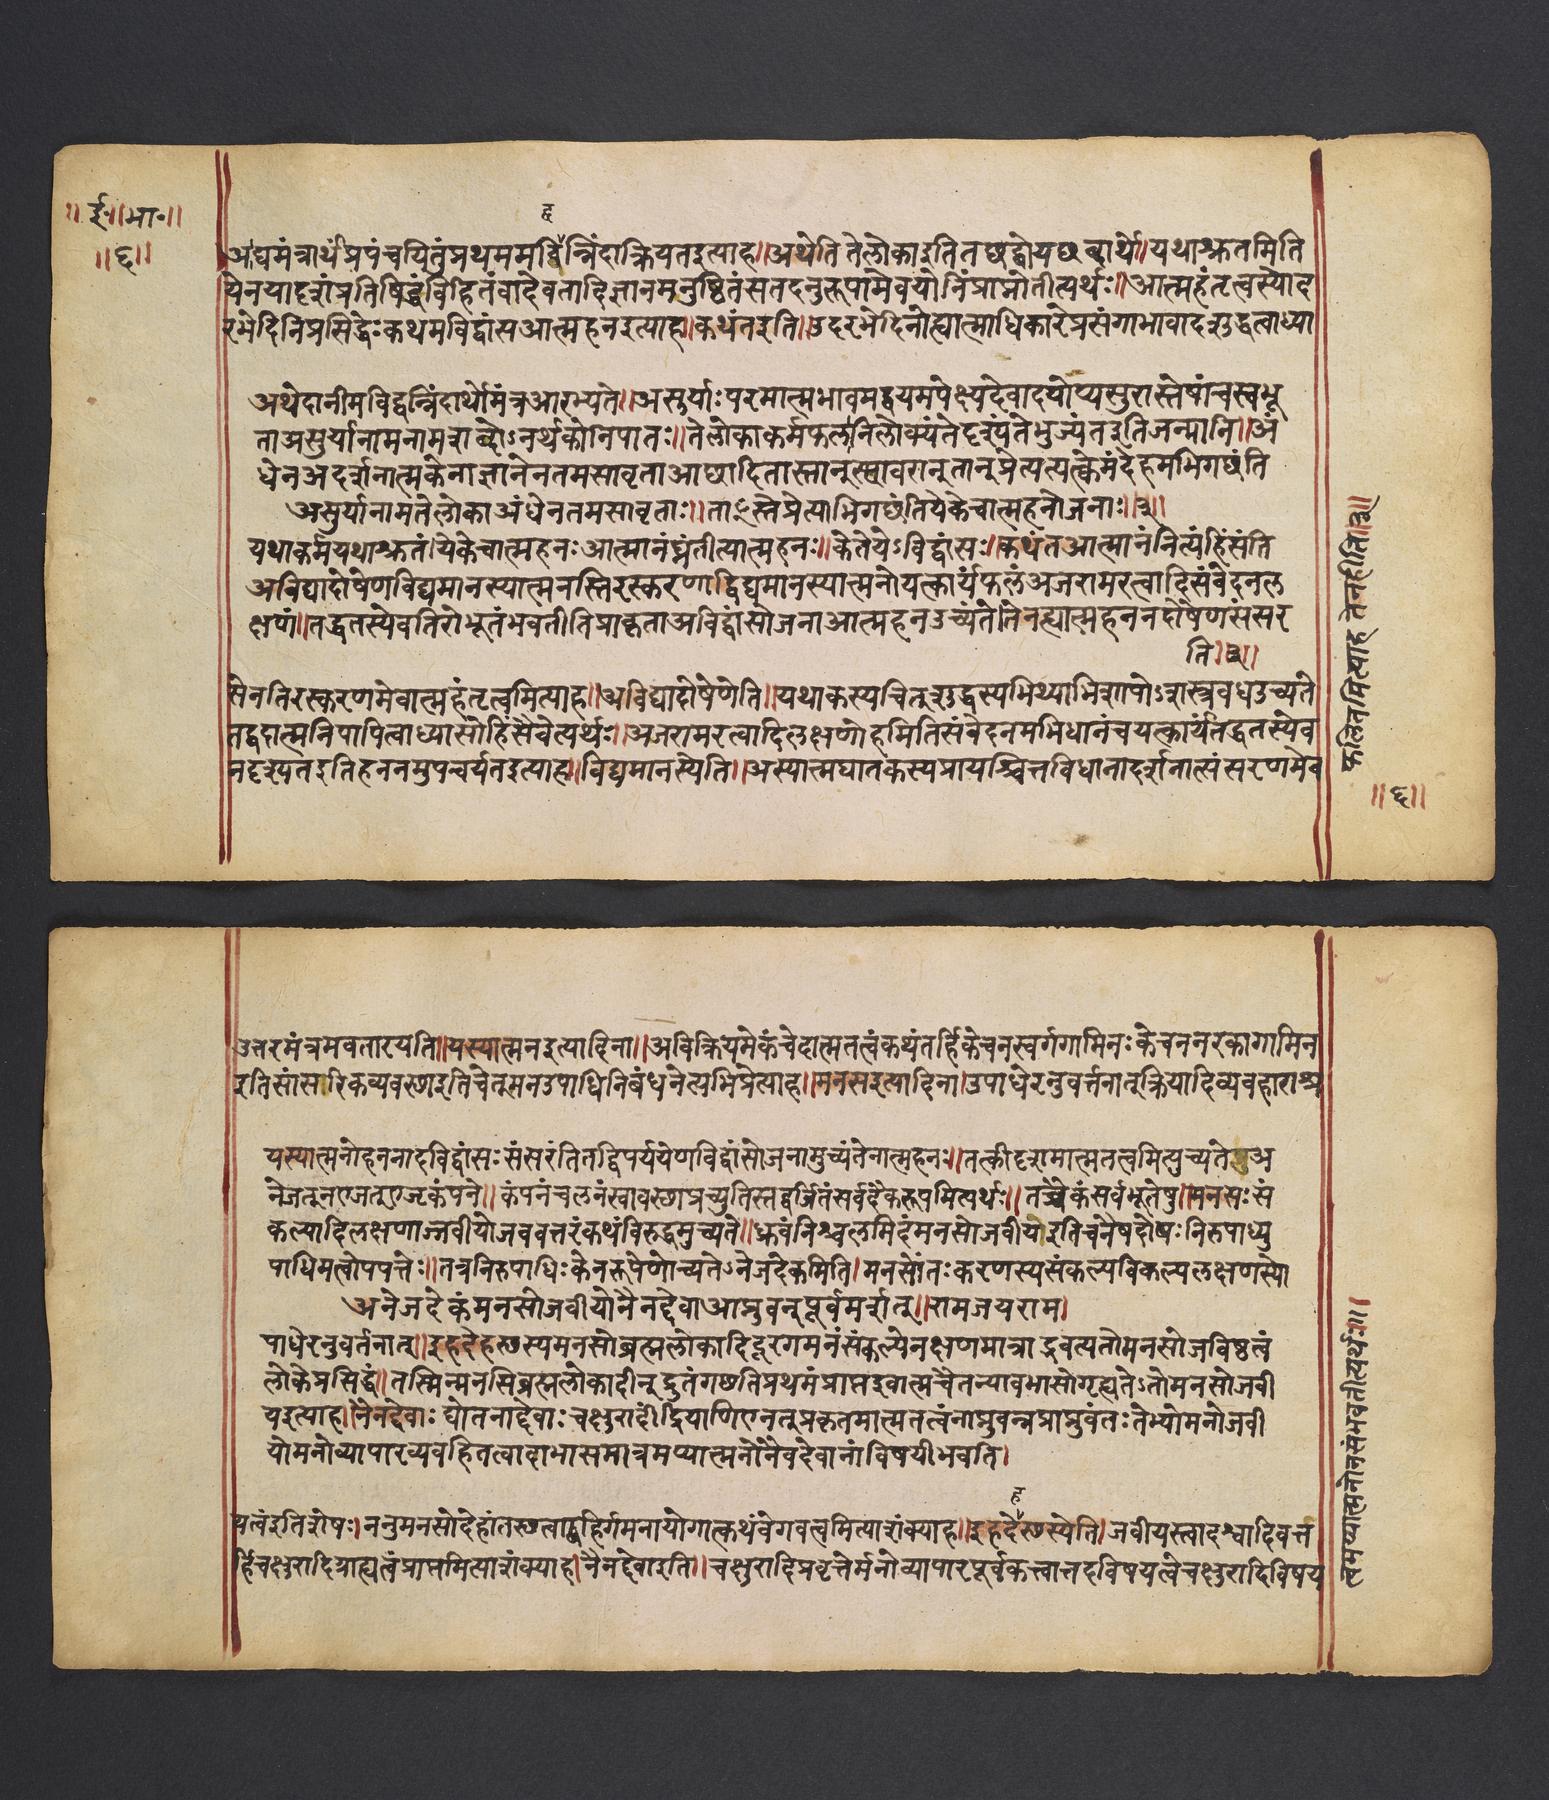 ॥ई॰॥भा॰॥
॥६॥
द्व
आद्यमंत्रार्थं प्रपंचयितुं प्रथममविद्वन्निंदाक्रियतइत्याह॥अथेति तेलोकाइति तछब्दोयछब्दार्थे॥यथाश्रुतमिति
येनयादृशंप्रतिषिद्धंविहितंवादेवतादिज्ञानमनुष्ठितंसतदनुरूपामेवयोनिंप्राप्नोतीत्यर्थः॥आत्महंतृत्वस्योद
रभेदिनिप्रसिद्धेःकथमविद्वांसआत्महनइत्याह॥कथंतइति॥उदरभेदिनोह्यात्माधिकारेप्रसंगाभावादशुद्धत्वाध्या
अथेदानीमविद्वन्निंदार्थोमंत्रआरभ्यते॥असुर्याःपरमात्मभावमद्वयमपेक्ष्यदेवादयोप्यसुरास्तेषांचस्वभू
ताअसुर्यानामनामशब्दोऽनर्थकोनिपातः॥तेलोकाकर्मफलानिलोक्यंतेदृश्यंतेभुज्यंतइतिजन्मानि॥अं
धेनअदर्शनात्मकेनाज्ञानेनतमसावृताआछादितास्तान्स्थावरान्तान्प्रेत्यत्यत्क्वेमंदेहमभिगछंति
असुर्यानामतेलोकाअंधेनतमसावृताः॥ताꣳस्तेप्रेत्याभिगछंतियेकेचात्महनोजनाः॥३॥
यथाकर्मयथाश्रुतं।येकेचात्महनःआत्मानंघ्नंतीत्यात्महनः॥केतेयेऽविद्वांसः॥कथंतआत्मानंनित्यंहिंसंति
अविद्यादोषेणविद्यमानस्यात्मनस्तिरस्करणाद्विद्यमानस्यात्मनोयत्कार्यंफलंअजरामरत्वादिसंवेदनल
क्षणं॥तद्धतस्येवतिरोभूतंभवतीतिप्राकृताअविद्वांसोजनाआत्महनउच्यंते।तेनह्यात्महननदोषेणसंसर
ति॥३॥
सेनतिरस्करणमेवात्महंतृत्वमित्याह॥अविद्यादोषेणेति॥यथाकस्यचित्शुद्धस्यमिथ्याभिशापोऽशस्त्रवधउच्यते
तद्वदात्मनिपापित्वाध्यासोहिंसैवेत्यर्थः॥अजरामरत्वादिलक्षणोहमितिसंवेदनमभिधानंचयत्कार्यंतद्धतस्येव
नदृश्यतइतिहननमुपचर्यतइत्याह॥विद्यमानस्येति॥अस्यात्मघातकस्यप्रायश्चित्तविधानादर्शनात्संसरणमेव
फलितमित्याह तेनहीति॥३॥
॥६॥
उत्तरमंत्रमवतारयति॥यस्यात्मनइत्यादिना॥अविक्रियमेकंचेदात्मतत्वंकथंतर्हिकेचनस्वर्गगामिनःकेचननरकगामिन
इतिसांसारिकव्यवस्थाइतिचेत्मनउपाधिनिबंधनेत्यभिप्रेत्याह॥मनसइत्यादिना।उपाधेरनुवर्त्तनात्क्रियादिव्यवहाराश्र
यस्यात्मनोहननादविद्वांसःसंसरंतितद्विपर्ययेणविद्वांसोजनामुच्यंतेनात्महनः॥तत्कीदृशमात्मतत्वमित्युच्यतेअ
नेजत्नएजत्एजृकंपने॥कंपनंचलनंस्वावस्थाप्रच्युतिस्तद्वर्जितंसर्वदैकरूपमित्यर्थः॥तच्चैकंसर्वभूतेषु।मनसःसं
कल्पादिलक्षणाज्जवीयोजववत्तरंकथंविरुद्धमुच्यते॥ध्रुवंनिश्चलमिदंमनसोजवीयइतिचनैषदोषःनिरुपाध्यु
पाधिमत्वोपपत्तेः॥तत्रनिरुपाधिःकेनरूपेणोच्यतेऽनेजदेकमिति।मनसोंतःकरणस्यसंकल्पविकल्पलक्षणस्यो
अनेजदेकंमनसोजवीयोनैनद्देवाआप्नुवन्पूर्वमर्शत्॥रामजयराम।
पाधेरनुवर्तनात्॥इहदेहस्थस्यमनसोब्रह्मलोकादिदूरगमनंसंकल्पेनक्षणमात्राद्भवत्यतोमनसोजविष्ठत्वं
लोकेप्रसिद्धं॥तस्मिन्मनसिब्रह्मलोकादीन्द्रुतंगछतिप्रथमंप्राप्तइवात्मचैतन्यावभासोगृह्यतेऽतोमनसोजवी
यइत्याह।नैनद्देवाःद्योतनाद्देवाःचक्षुरादींद्रियाणिएनत्प्रकृतमात्मतत्वंनाप्नुवन्नप्राप्नुवंतःतेभ्योमनोजवी
योमनोव्यापारव्यवहितत्वादाभासमात्रमप्यात्मनोनैवदेवानांविषयीभवति।
ह
यत्वंइतिशेषः।ननुमनसोदेहांतस्थत्वाद्बहिर्गमनायोगात्कथंवेगवत्वमित्याशंक्याह॥इहदेस्थस्येति।जवीयस्त्वादश्वादिवत्त
र्हिचक्षुरादिग्राह्यत्वंप्राप्तमित्याशंक्याह।नैनद्देवाइति॥चक्षुरादिप्रवृत्तेर्मनोव्यापारपूर्वकत्वात्तदविषयत्वेचक्षुरादिविषय
त्वमप्यात्मनोनसंभवतीत्यर्थः॥